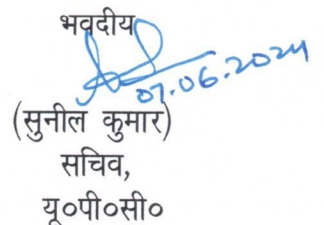 भवदीय
07.06.2024
(सुनील कुमार)
सचिव,
यू०पी०सी०